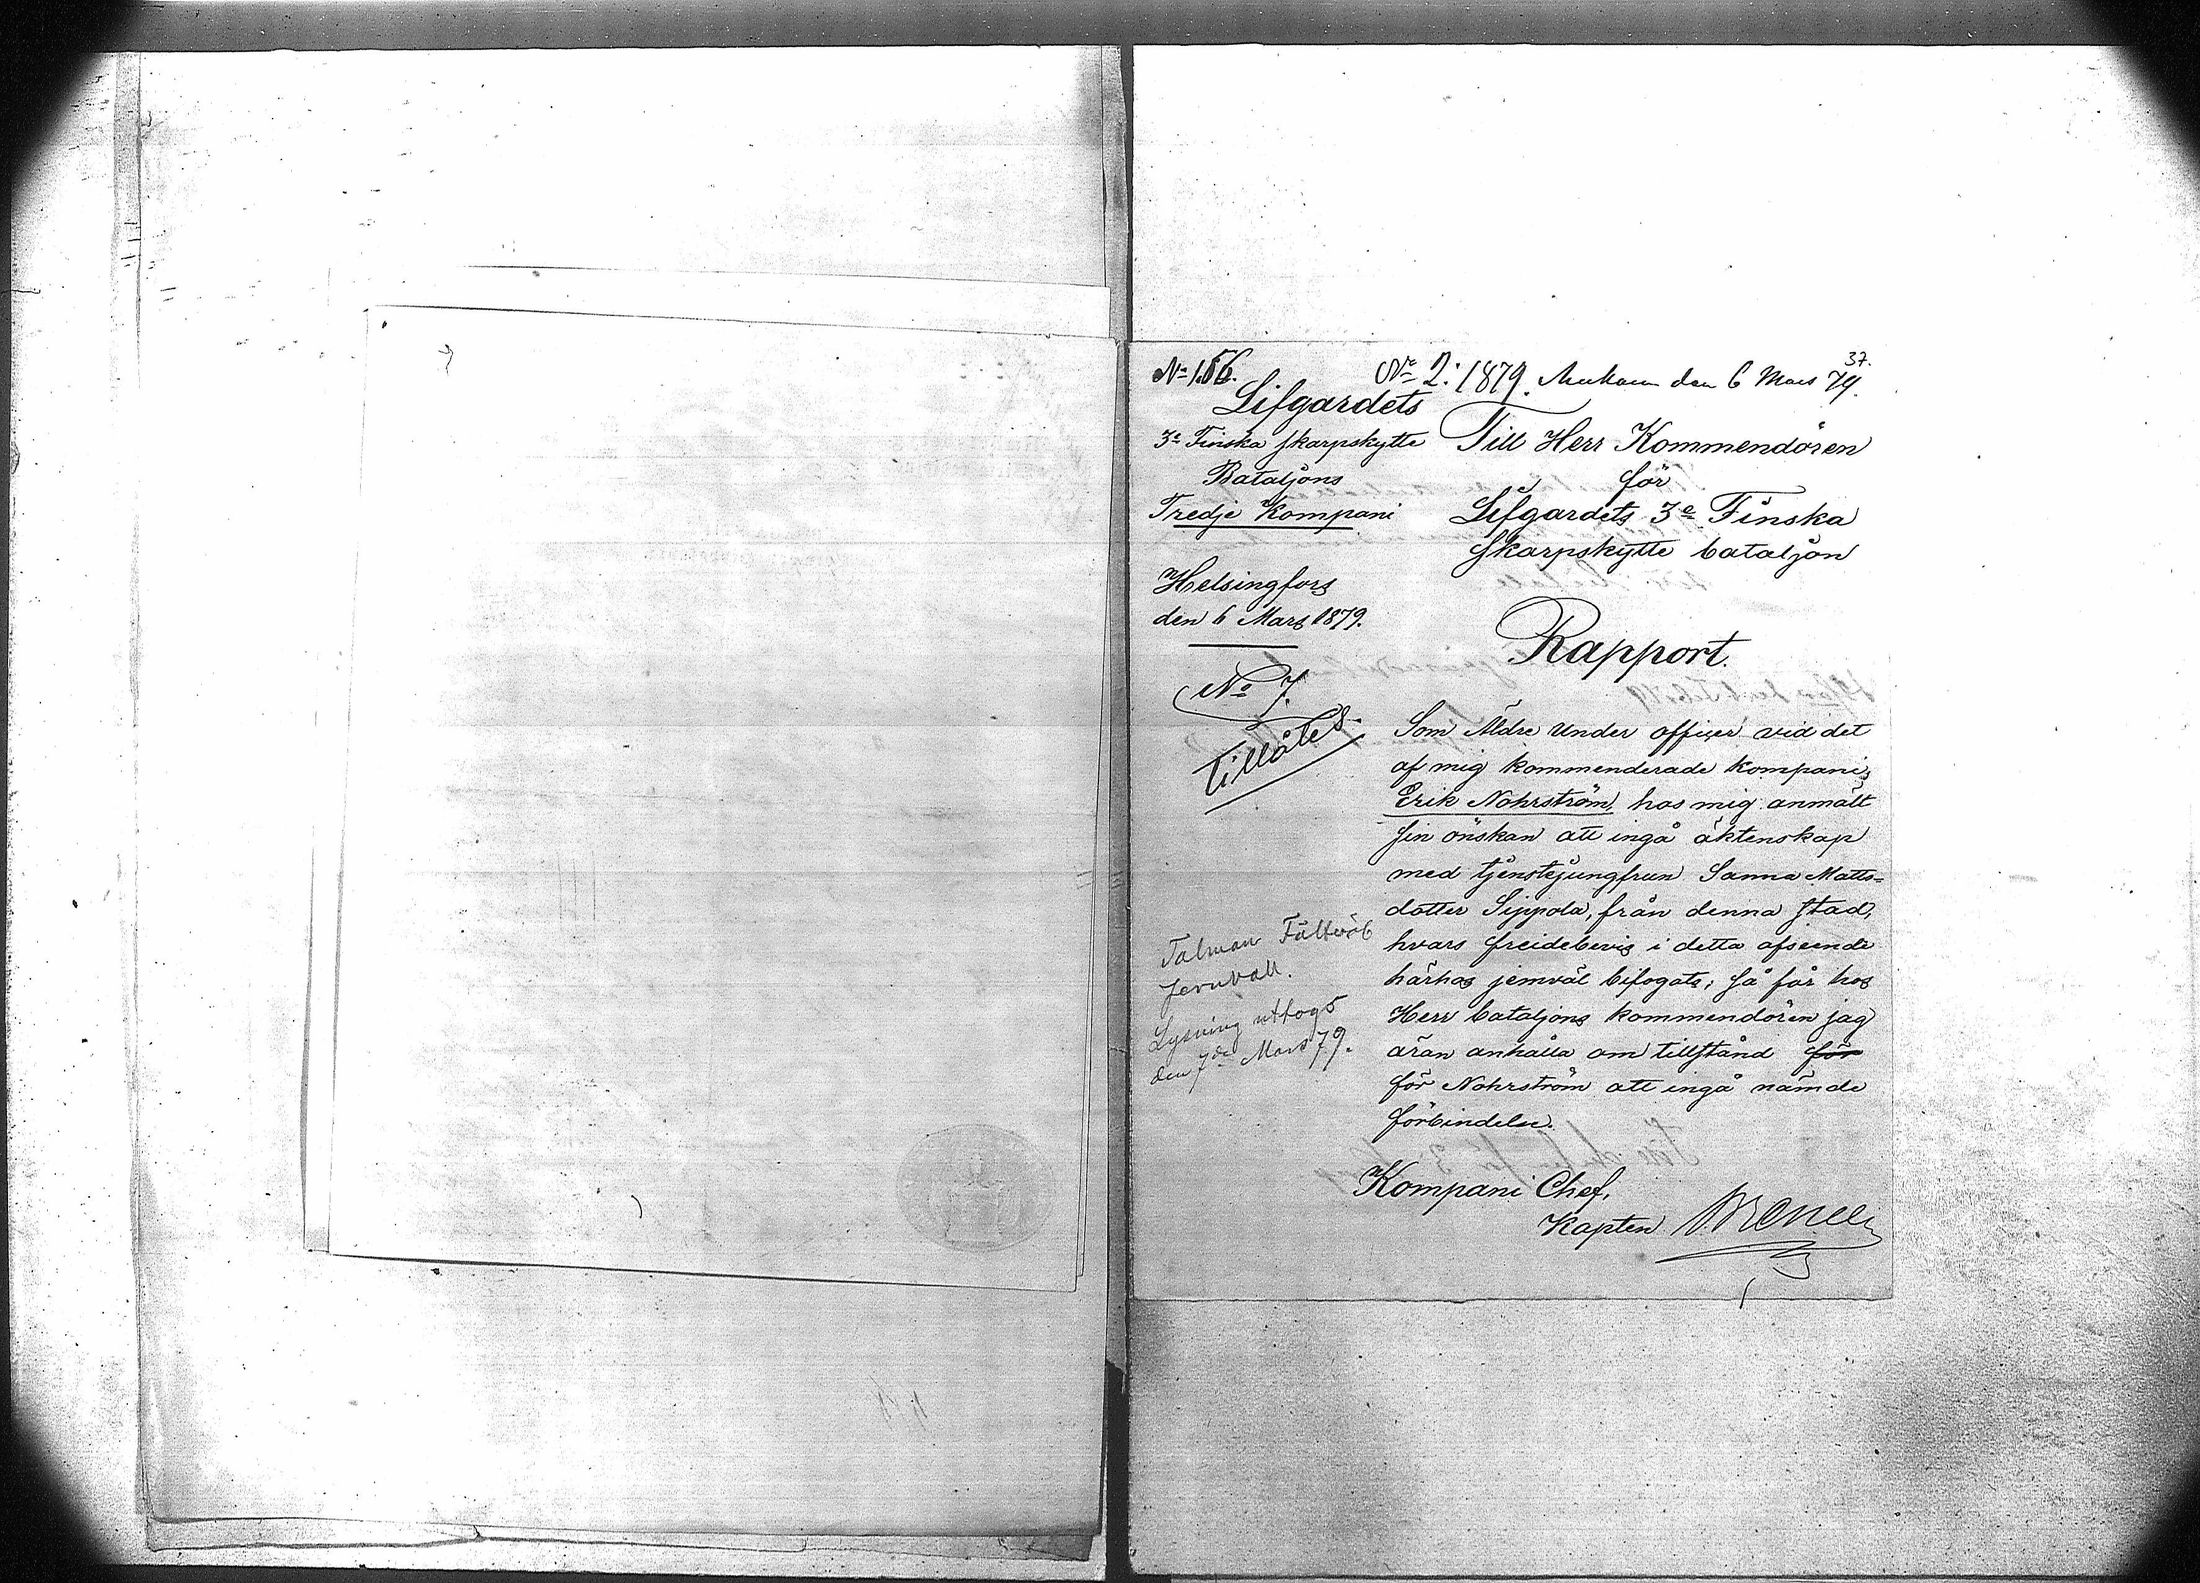 37.
No 156.
No 2: 1879. Ank den 6 Mars 79.
Lifgardets
3e Finska skarpskytte
Bataljons
Tredje Kompani
Helsingfors
den 6 Mars 1879.
No 7.
Tillåtes.
Till Herr Kommendören
för
Lifgardets 3e Finska
skarpskytte bataljon
Rapport.
Som Äldre Under officer vid det
af mig kommenderade kompani,
Erik Nohrström, hos mig anmält
sin önskan att ingå äktenskap
med tjenstejungfrun Sanna Matts=
dotter Sippola, från denna stad,
hvars freidebevis i detta afseende
härhos jemväl bifogats; så får hos
Herr bataljons kommendören jag
äran anhålla om tillstånd för
för Nohrström att ingå nämde
förbindelse.
Talman Fältväb
Jernvall.
Lysning uttogs
den 7de Mars 79.
Kompani Chef,
Kapten